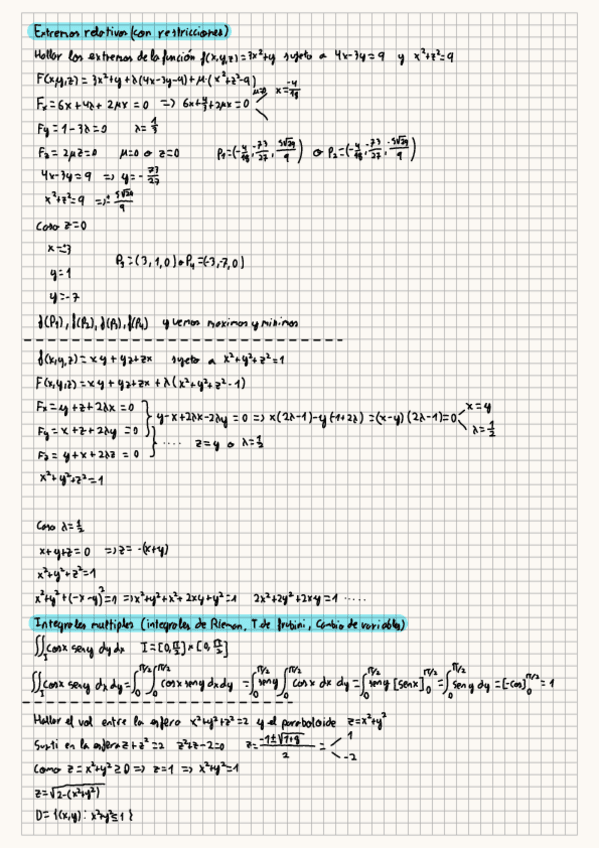 Extremos relativos (con restricciones)
Hallar los extremos de la función f(x,y,z)=3x²+y sujeto a 4x-3y=9 y x²+z²=9
F(x,y,z)=3x²+y+λ(4x-3y-9)+μ·(x²+z²-9)
Fx=6x+4λ+2μx=0 => 6x+4/3+2μx=0 μ=0 x=-4/18
Fy=1-3λ=0 λ=1/3
Fz=2μz=0 μ=0 o z=0 P1=(-4/18,-73/27,5√29/9) o P2=(-4/18,-73/27,-5√29/9)
4x-3y=9 => y=-73/27
x²+z²=9 => ± 5√29/9
Caso z=0
x=±3
y=1 P3=(3,1,0) o P4=(-3,-7,0)
y=-7
f(P1), f(P2), f(P3), f(P4) y vemos maximos y minimos
f(x,y,z)=xy+yz+zx sujeto a x²+y²+z²=1
F(x,y,z)=xy+yz+zx+λ(x²+y²+z²-1)
Fx=y+z+2λx=0
Fy=x+z+2λy=0
y-x+2λx-2λy=0 => x(2λ-1)-y(-1+2λ)=(x-y)(2λ-1)=0 x=y λ=1/2
Fz=y+x+2λz=0 .... z=y o λ=1/2
x²+y²+z²=1
Caso λ=1/2
x+y+z=0 => z=-(x+y)
x²+y²+z²=1
x²+y²+(-x-y)²=1 => x²+y²+x²+2xy+y²=1 2x²+2y²+2xy=1 .....
Integrales multiples (integrales de Rieman, T de frubini, Cambio de variables)
∬_I cosx seny dy dx I=[0,π/2]×[0,π/2]
∬_I cosx seny dx dy=∫_0^π/2 ∫_0^π/2 cosx seny dx dy=∫_0^π/2 seny ∫_0^π/2 cosx dx dy=∫_0^π/2 seny [senx]_0^π/2=∫_0^π/2 seny dy=[-cos]_0^π/2=1
Hallar el vol entre la esfera x²+y²+z²=2 y el paraboloide z=x²+y²
Susti en la esfera z+z²=2 z²+z-2=0 z=(-1±√1+8)/2= 1 -2
Como z=x²+y²≥0 => z=1 => x²+y²=1
z=√2-(x²+y²)
D={(x,y): x²+y²≤1}